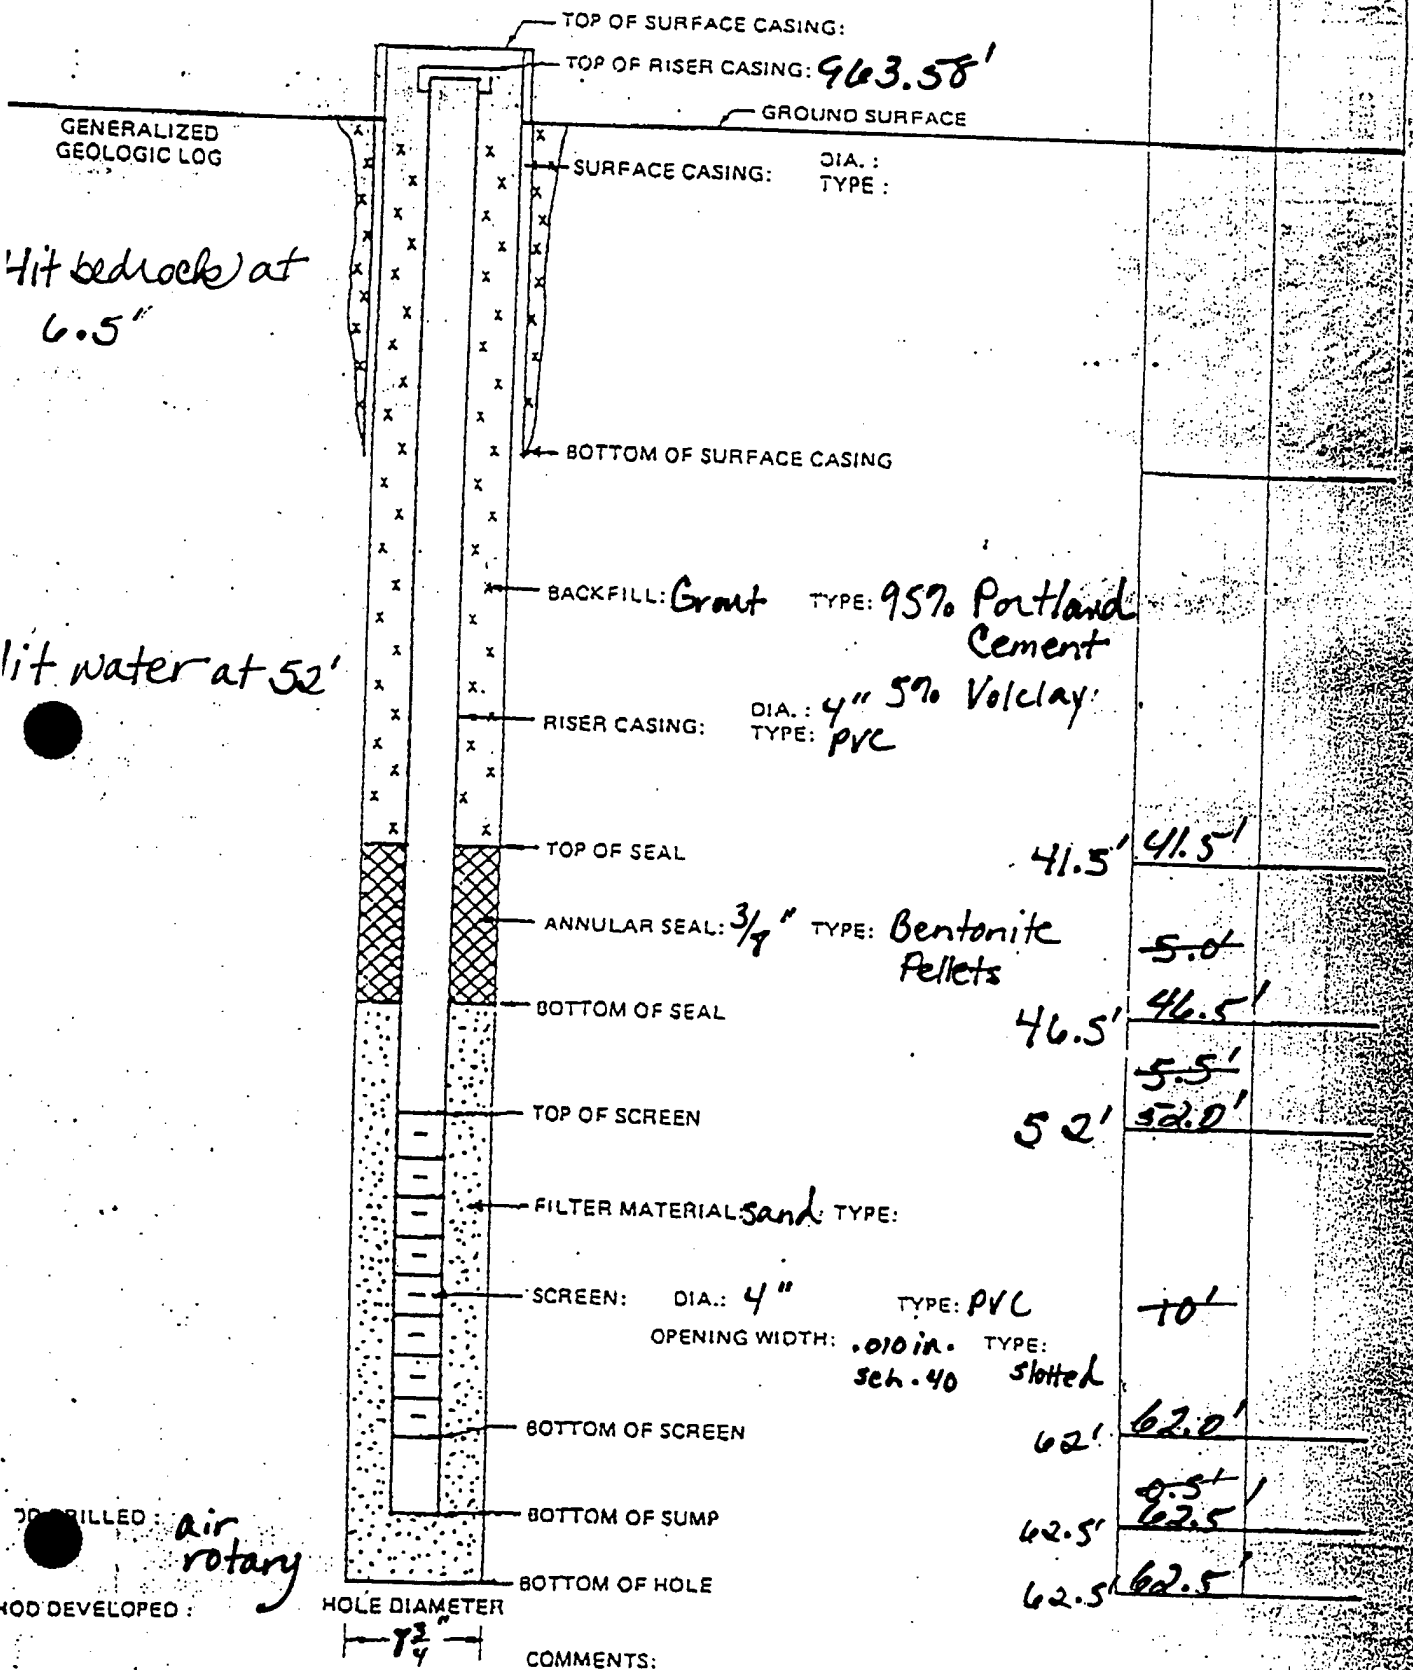 TOP OF SURFACE CASING:
TOP OF RISER CASING: 963.58'
GROUND SURFACE
GENERALIZED
GEOLOGIC LOG
SURFACE CASING: DIA. :
TYPE :
Hit bedrock at
6.5'
BOTTOM OF SURFACE CASING
BACKFILL: Grout TYPE: 95% Portland
Cement
5% Volclay
Hit water at 52'
RISER CASING: DIA. : 4"
TYPE: PVC
TOP OF SEAL 41.5' 41.5'
ANNULAR SEAL: 3/8" TYPE: Bentonite
Pellets
5.0'
BOTTOM OF SEAL 46.5' 46.5'
5.5'
TOP OF SCREEN 52' 52.0'
FILTER MATERIAL: sand TYPE:
SCREEN: DIA.: 4" TYPE: PVC 10'
OPENING WIDTH: .010 in. TYPE:
sch. 40 slotted
BOTTOM OF SCREEN 62' 62.0'
0.5'
BOTTOM OF SUMP 62.5' 62.5'
RILLED : air
rotary
BOTTOM OF HOLE 62.5' 62.5'
HOD DEVELOPED :
HOLE DIAMETER
3/4"
COMMENTS: